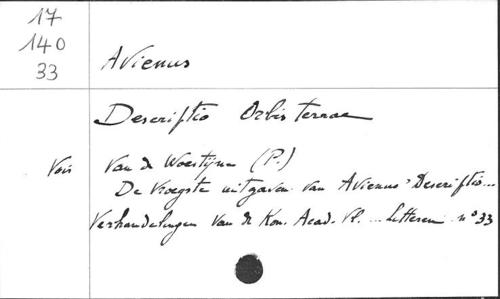 17
140
33
Avienus
Descriptio Orbis terrae
Vois Van de Woestijne (P.)
De vroegste uitgaven van Avienus' Descriptio...
Verhandelingen van de Kon. Acad. Vl. ... Letteren n° 33